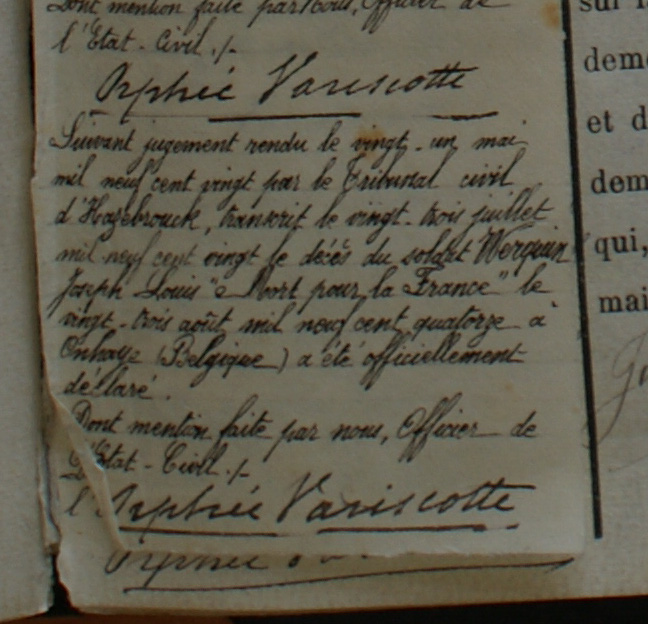 Dont mention faite par Nous, Officier de
l'Etat-Civil./-
Orphée Variscotte
Suivant jugement rendu le vingt-un mai
mil neuf cent vingt par le Tribunal civil
d'Hazebrouck, transcrit le vingt-trois juillet
mil neuf cent vingt le décès du soldat Werquin
Joseph Louis "Mort pour la France" le
vingt-trois août mil neuf cent quatorze à
Onhaye (Belgique) a été officiellement
déclaré.
Dont mention faite par nous, Officier de
l'Etat-Civil./-
Orphée Variscotte
Orphée
sur
et d
dem
qui,
mai